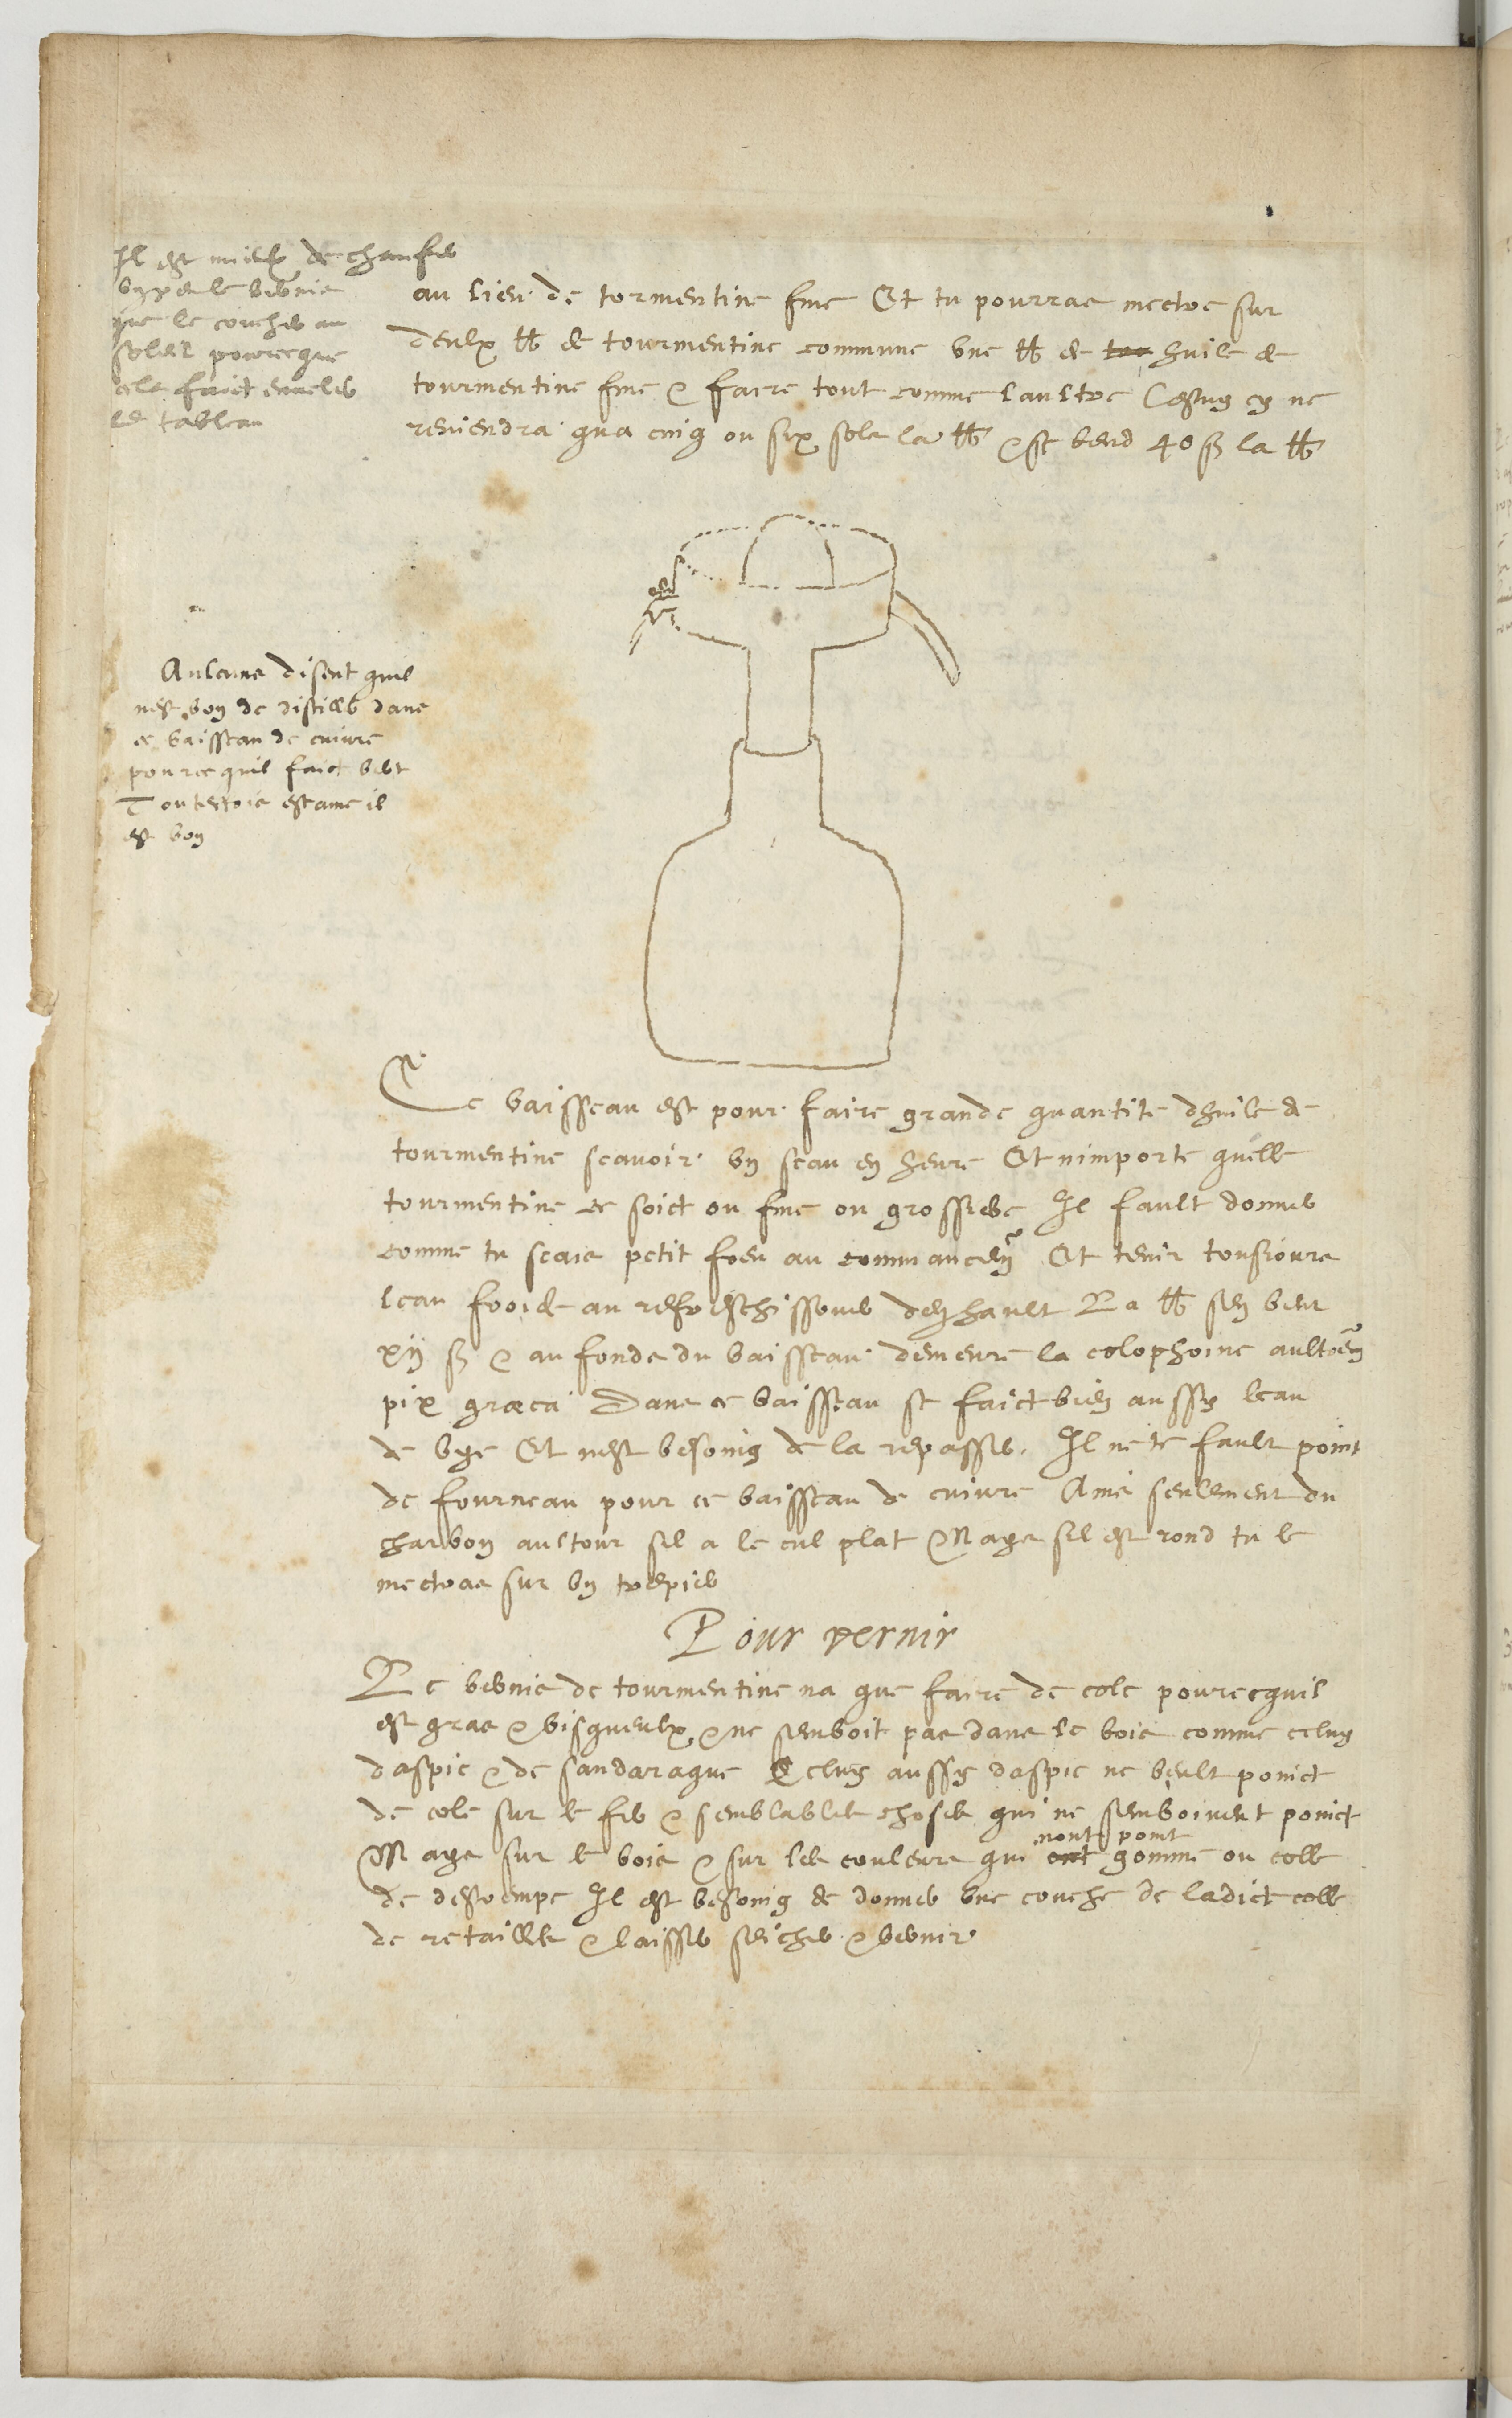 Il est mieulx de chaufer
un peu le vernis
que le coucher au
soleil pourceque
cela faict enveler
le tableau
au lieu de tormentine fine Et tu pourras mectre sur
deulx ℔ de tourmentine commune une ℔ de huile de
tourmentine fine & faire tout comme laultre Cestuy cy ne
reviendra qua cinq ou six sols la ℔ & se vend 40 ß la ℔
eau
Aulcuns disent quil
nest bon de distiller dans
ce vaisseau de cuivre
pource quil faict vert
Toutesfois estame il
est bon
Ce vaisseau est pour faire grande quantite dhuile de
tourmentine scavoir un seau en heure Et nimporte quelle
tourmentine ce soict ou fine ou grossiere Il fault donner
comme tu scais petit foeu au commancem~ Et tenir tousjours
leau froide au refreschissoir den hault La ℔ sen vent
xij ß & au fonds du vaisseau demeure la colophoine aultrem~
pix græca Dans ce vaisseau se faict bien aussy leau
de vye Et nest besoing de la repasser. Il ne te fault point
de fourneau pour ce vaisseau de cuivre Ains seulement du
charbon aultour sil a le cul plat Mays sil est rond tu le
mectras sur un trepied
Pour vernir
Le vernis de tourmentine na que faire de cole pourcequil
est gras & visqueulx & ne senboit pas dans le bois comme celuy
daspic & de sandaraque Celuy aussy daspic ne veult poinct
de cole sur le fer & semblables choses qui ne senboivent poinct
Mays sur le bois & sur les couleurs qui nont point gomme ou colle
de destrempe Il est besoing de donner une couche de ladict colle
de retailles & laisser seicher & vernir